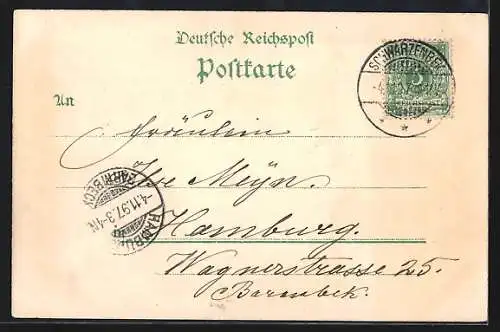 Deutsche Reichspost
Postkarte
SCHWARZENBEK
5
An
Fräulein
Ilse Meyn.
Hamburg.
Wagnerstrasse 25.
Barmbek.
HAMBURG
BARMBECK
-4.11.97.3-4N.